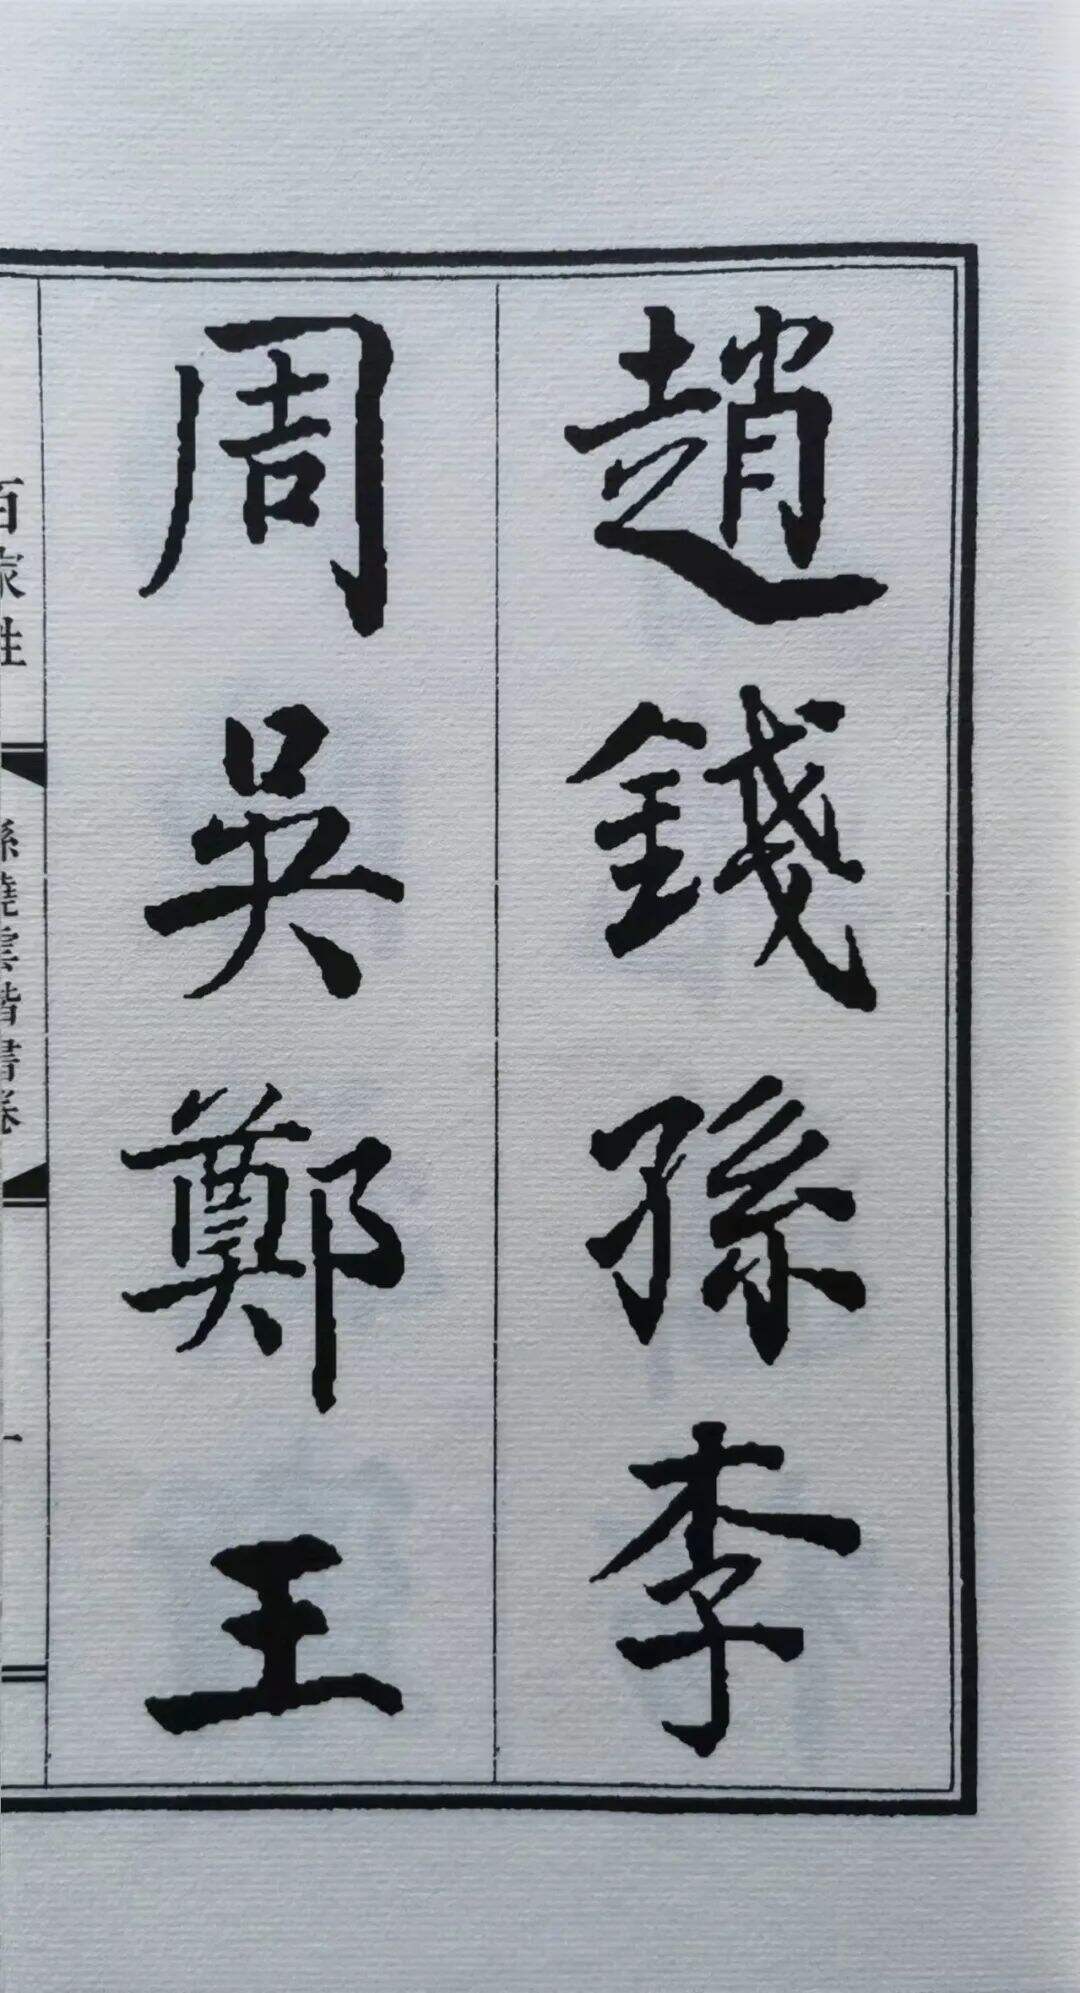 趙錢孫李
周吳鄭王
百家姓
孫曉雲楷書卷
一